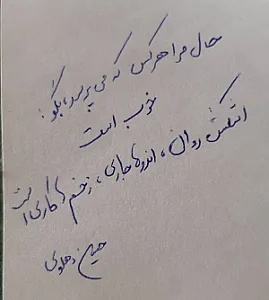 حال مرا هرکس که می پرسد، بگو:
خوب است
اشکش روان، اندوه جاری، زخم ها کاری است
حسین دهلوی